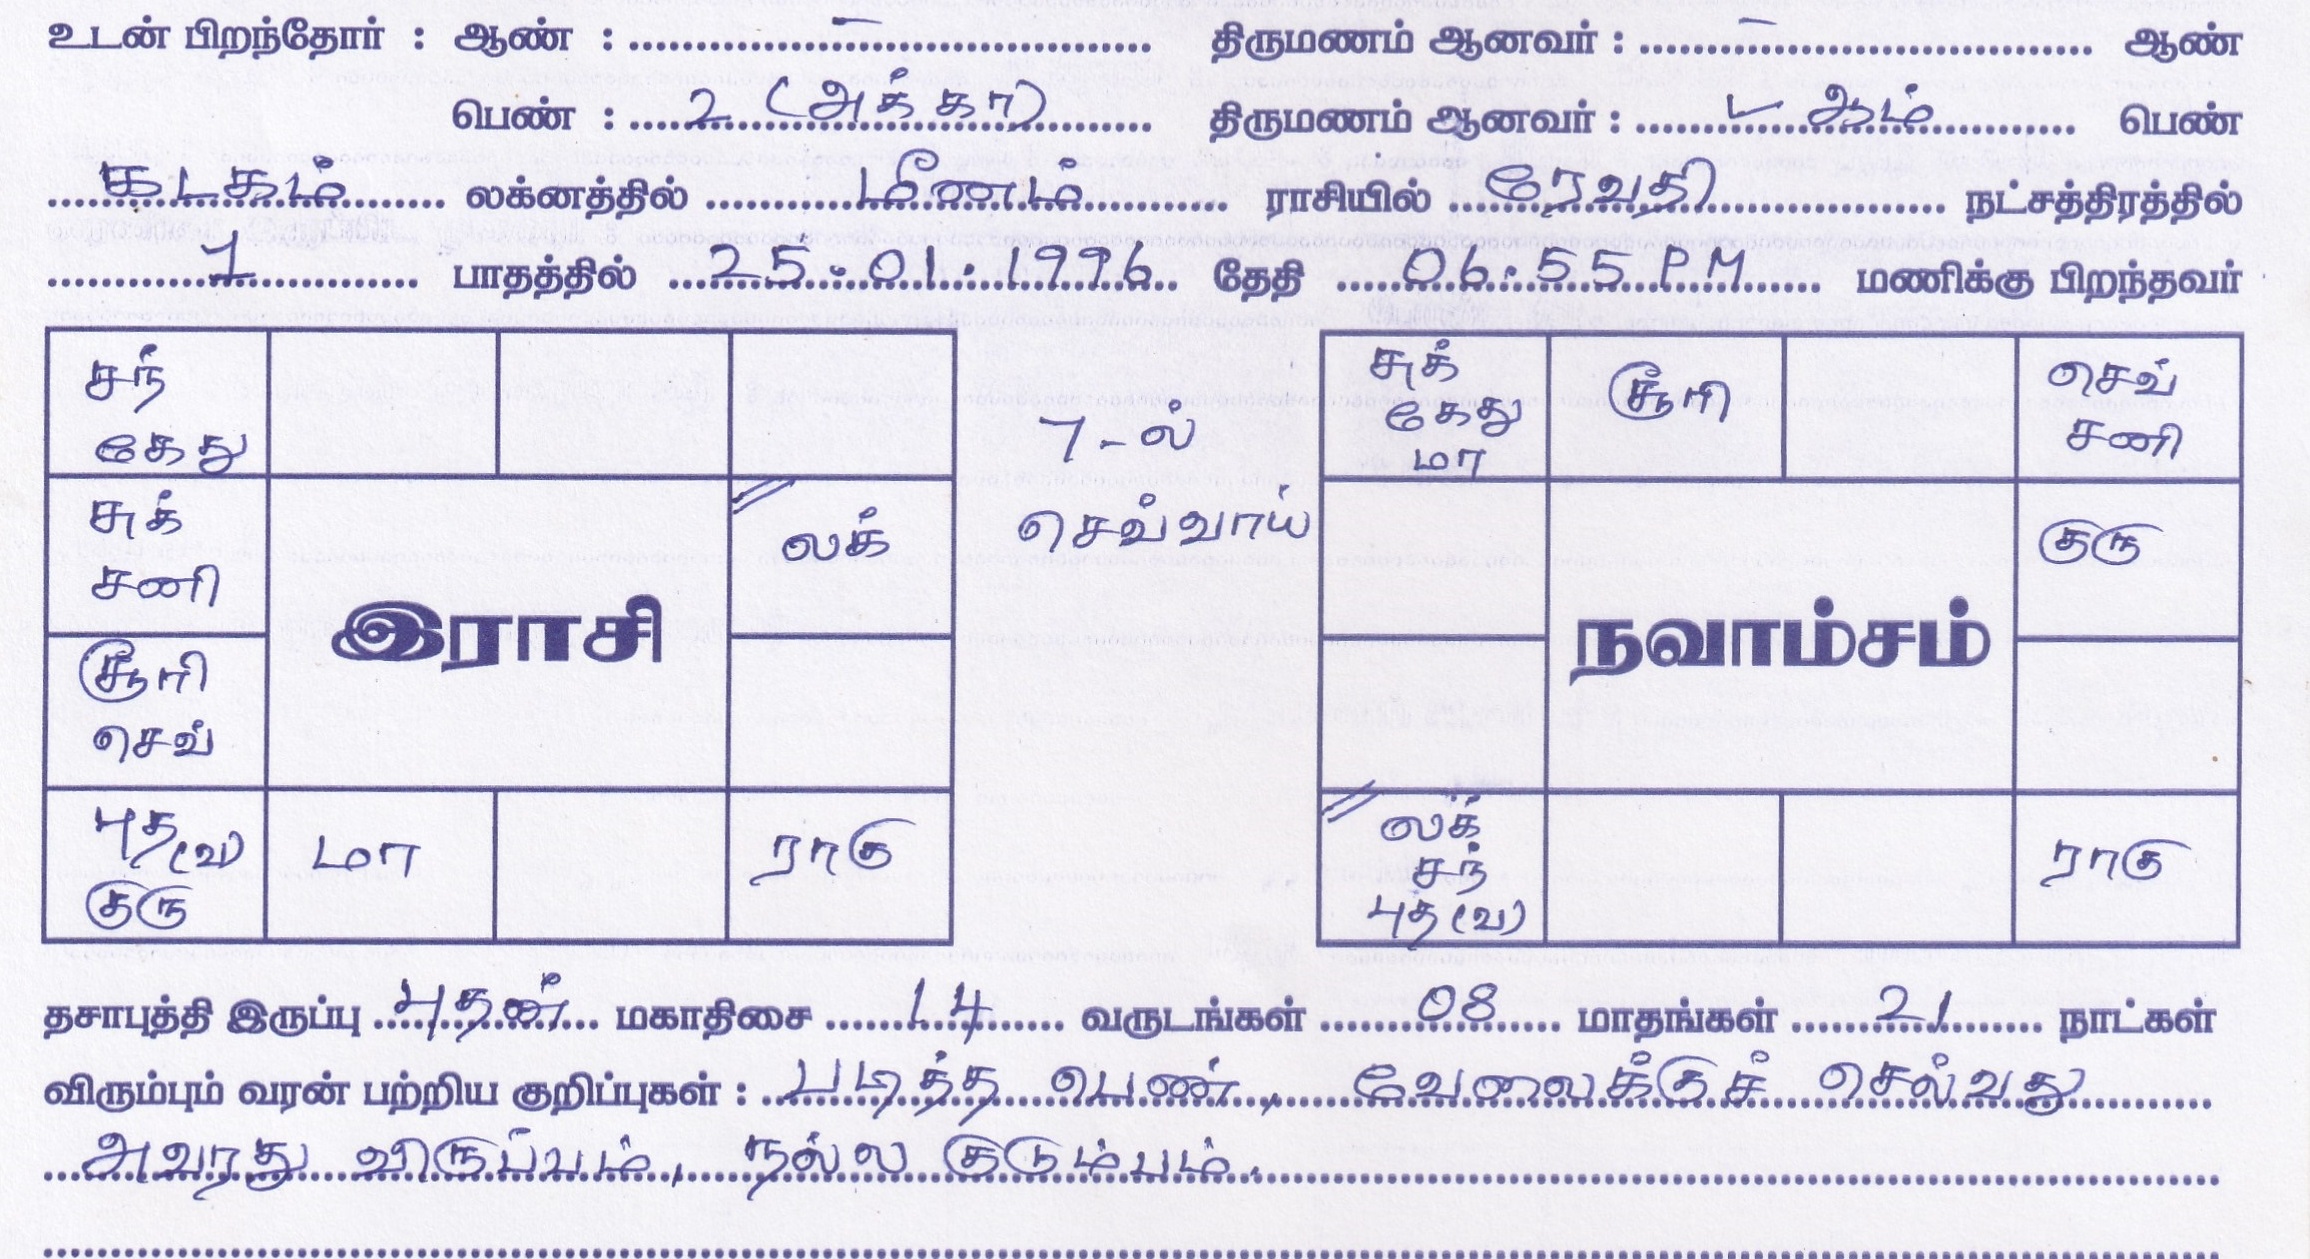 உடன் பிறந்தோர் : ஆண் : – திருமணம் ஆனவர் : – ஆண்
பெண் : 2 (அக்கா) திருமணம் ஆனவர் : ஆம் பெண்
கடகம் லக்னத்தில் மீனம் ராசியில் ரேவதி நட்சத்திரத்தில்
1 பாதத்தில் 25.01.1996 தேதி 06.55 PM மணிக்கு பிறந்தவர்
சந்
கேது
சுக்
சனி
லக்
சூரி
செவ்
புத (வ)
குரு
மா
ராகு
இராசி
7-ல்
செவ்வாய்
சுக்
கேது
மா
சூரி
செவ்
சனி
குரு
நவாம்சம்
லக்
சந்
புத (வ)
ராகு
தசாபுத்தி இருப்பு புதன் மகாதிசை 14 வருடங்கள் 08 மாதங்கள் 21 நாட்கள்
விரும்பும் வரன் பற்றிய குறிப்புகள் : படித்த பெண், வேலைக்குச் செல்வது
அவரது விருப்பம், நல்ல குடும்பம்.